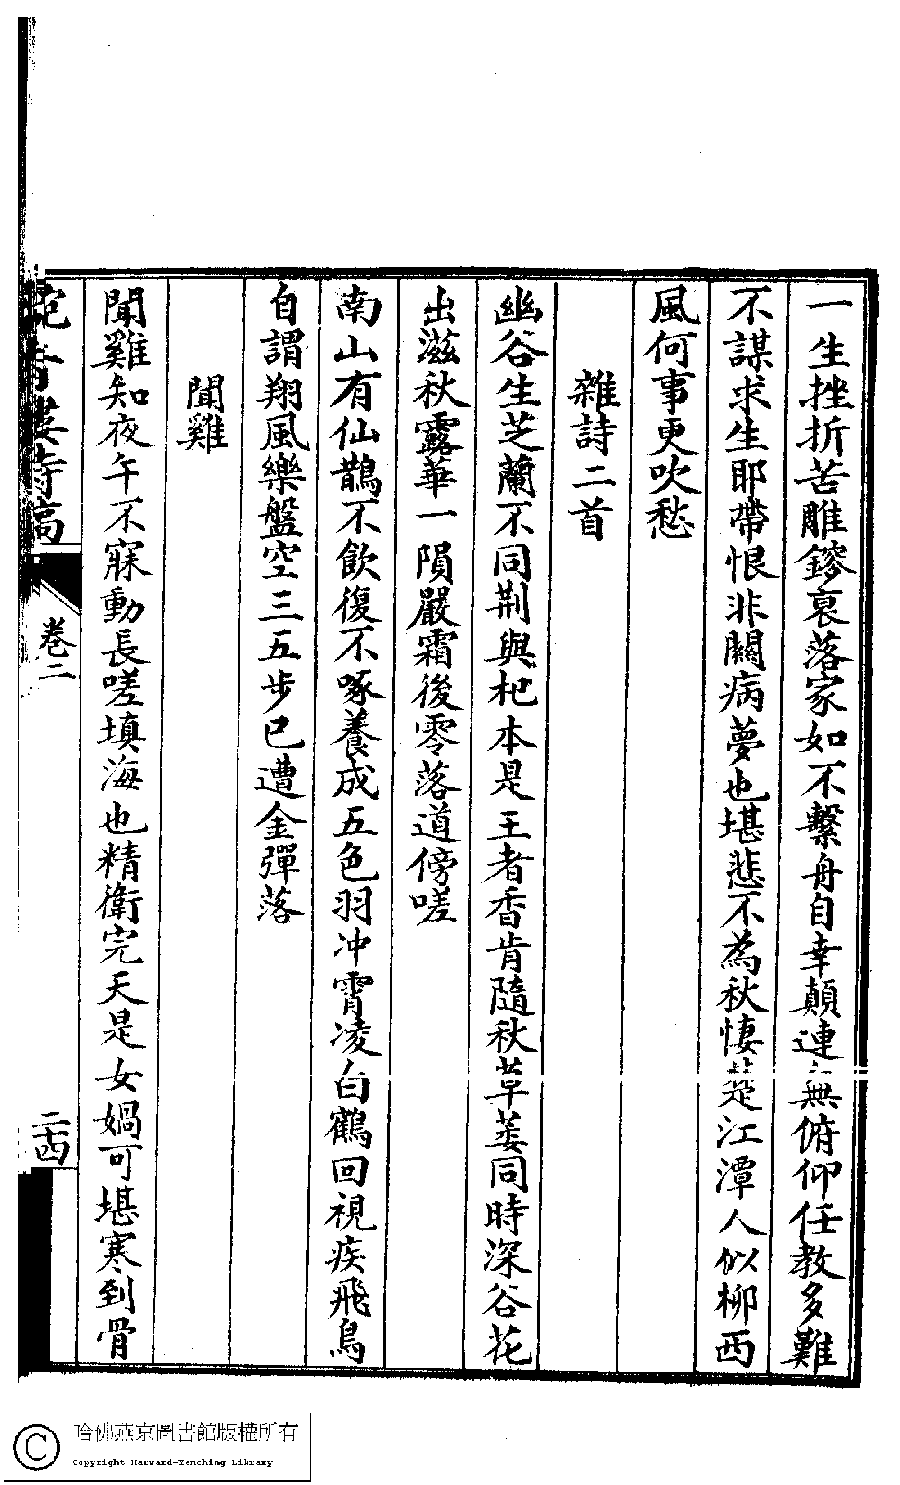 一生挫折苦雕鎪哀落家如不繫舟自幸顛連無俯仰任教多難
不謀求生即帶恨非關病夢也堪悲不為秋悽楚江潭人似柳西
風何事更吹愁
雜詩二首
幽谷生芝蘭不同荆與杞本是王者香肯隨秋草萎同時深谷花
出滋秋露華一隕嚴霜後零落道傍嗟
南山有仙鵲不飲復不啄養成五色羽冲霄凌白鶴回視疾飛鳥
自謂翔風樂盤空三五步已遭金彈落
聞雞
聞雞知夜午不寐動長嗟填海也精衛完天是女媧可堪寒到骨
詩高
卷二
二四
哈佛燕京圖書館版權所有
Copyright Harvard-Yenching Library